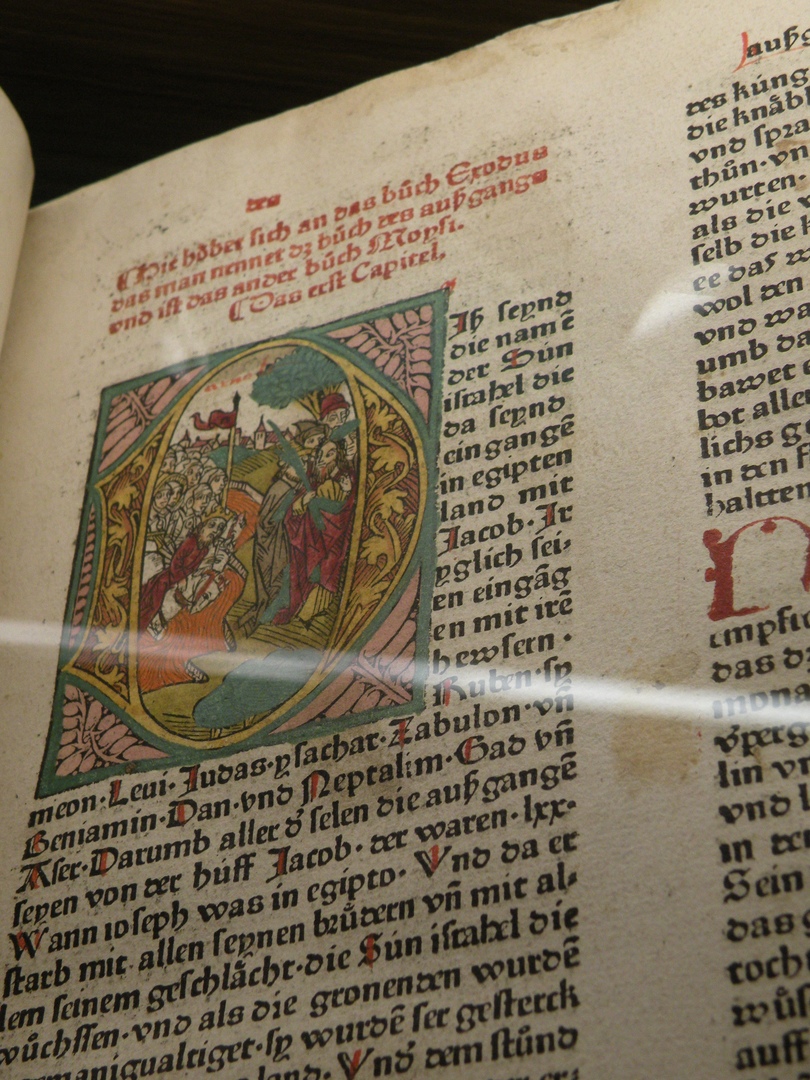 des
Hie höbet sich an das bůch Exodus
das man nennet dz bůch des außgangs
vnd ist das ander bůch Moysi.
Das erst Capitel.
Jß seynd
die namē
der Sún
israhel die
da seynd
eingangē
in egipten
land mit
Jacob. Jr
yglich sei⸗
en eingāg
en mit irē
hewsern.
Ruben. sy
meon. Leui. Judas. ysachar. Zabulon. vn̄
Beniamin. Dan. vnd Neptalim. Gad vn̄
Aser. Darumb aller d' selen die außgangē
seyen von der húff Jacob. der waren. lxx.
Wann ioseph was in egipto. Vnd da er
starb mit allen seynen brůdern vn̄ mit al⸗
lem seinem geschlächt. die Sún israhel die
wůchssen. vnd als die gronenden wurdē
manigualtiget. sy wurdē ser gesterck
land. Vnd dem stůnd
er⸗
außg
des kúng
die knåbl
vnd spra
thůn. vn
wurten.
als die w
selb die k
ee das w
wol den
vnd wa
umb da
bawet
bot alle
lichs g
in den f
haltten
N
impfi
das d
mona
lin vn
vnd l
in den
Sein
das g
tocht
wůs
auff